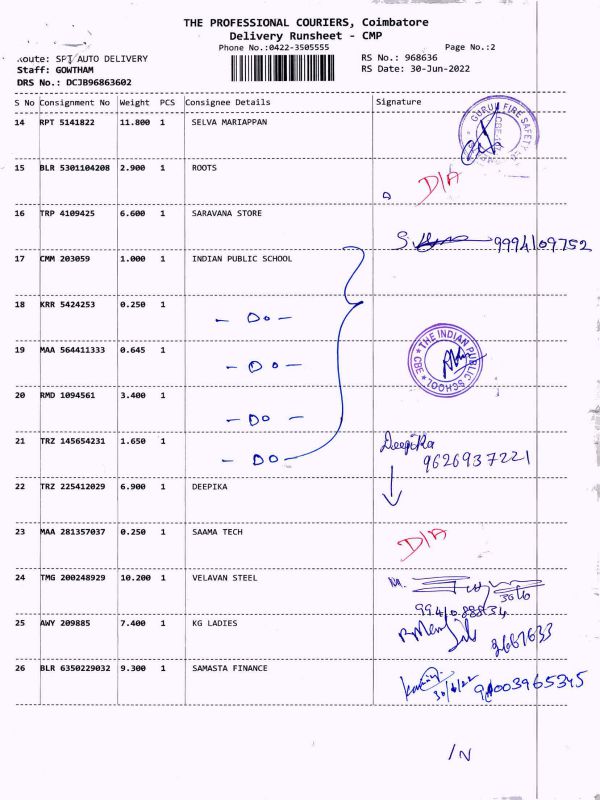 THE PROFESSIONAL COURIERS, Coimbatore
Delivery Runsheet - CMP
Phone No.:0422-3505555
Page No.:2
Route: SPT AUTO DELIVERY
RS No.: 968636
Staff: GOWTHAM
RS Date: 30-Jun-2022
DRS No.: DCJB96863602
S No Consignment No Weight PCS Consignee Details Signature
14 RPT 5141822 11.800 1 SELVA MARIAPPAN
GURU FIRE SAFETY
15 BLR 5301104208 2.900 1 ROOTS
D/A
16 TRP 4109425 6.600 1 SARAVANA STORE
9994109752
17 CMM 203059 1.000 1 INDIAN PUBLIC SCHOOL
18 KRR 5424253 0.250 1
- Do -
19 MAA 564411333 0.645 1
- Do -
THE INDIAN PUBLIC SCHOOL
CBE
20 RMD 1094561 3.400 1
- Do -
21 TRZ 145654231 1.650 1
- Do -
Deepika
9626937221
22 TRZ 225412029 6.900 1 DEEPIKA
23 MAA 281357037 0.250 1 SAAMA TECH
D/A
24 TMG 200248929 10.200 1 VELAVAN STEEL
25 AWY 209885 7.400 1 KG LADIES
26 BLR 6350229032 9.300 1 SAMASTA FINANCE
30/6/22
/N